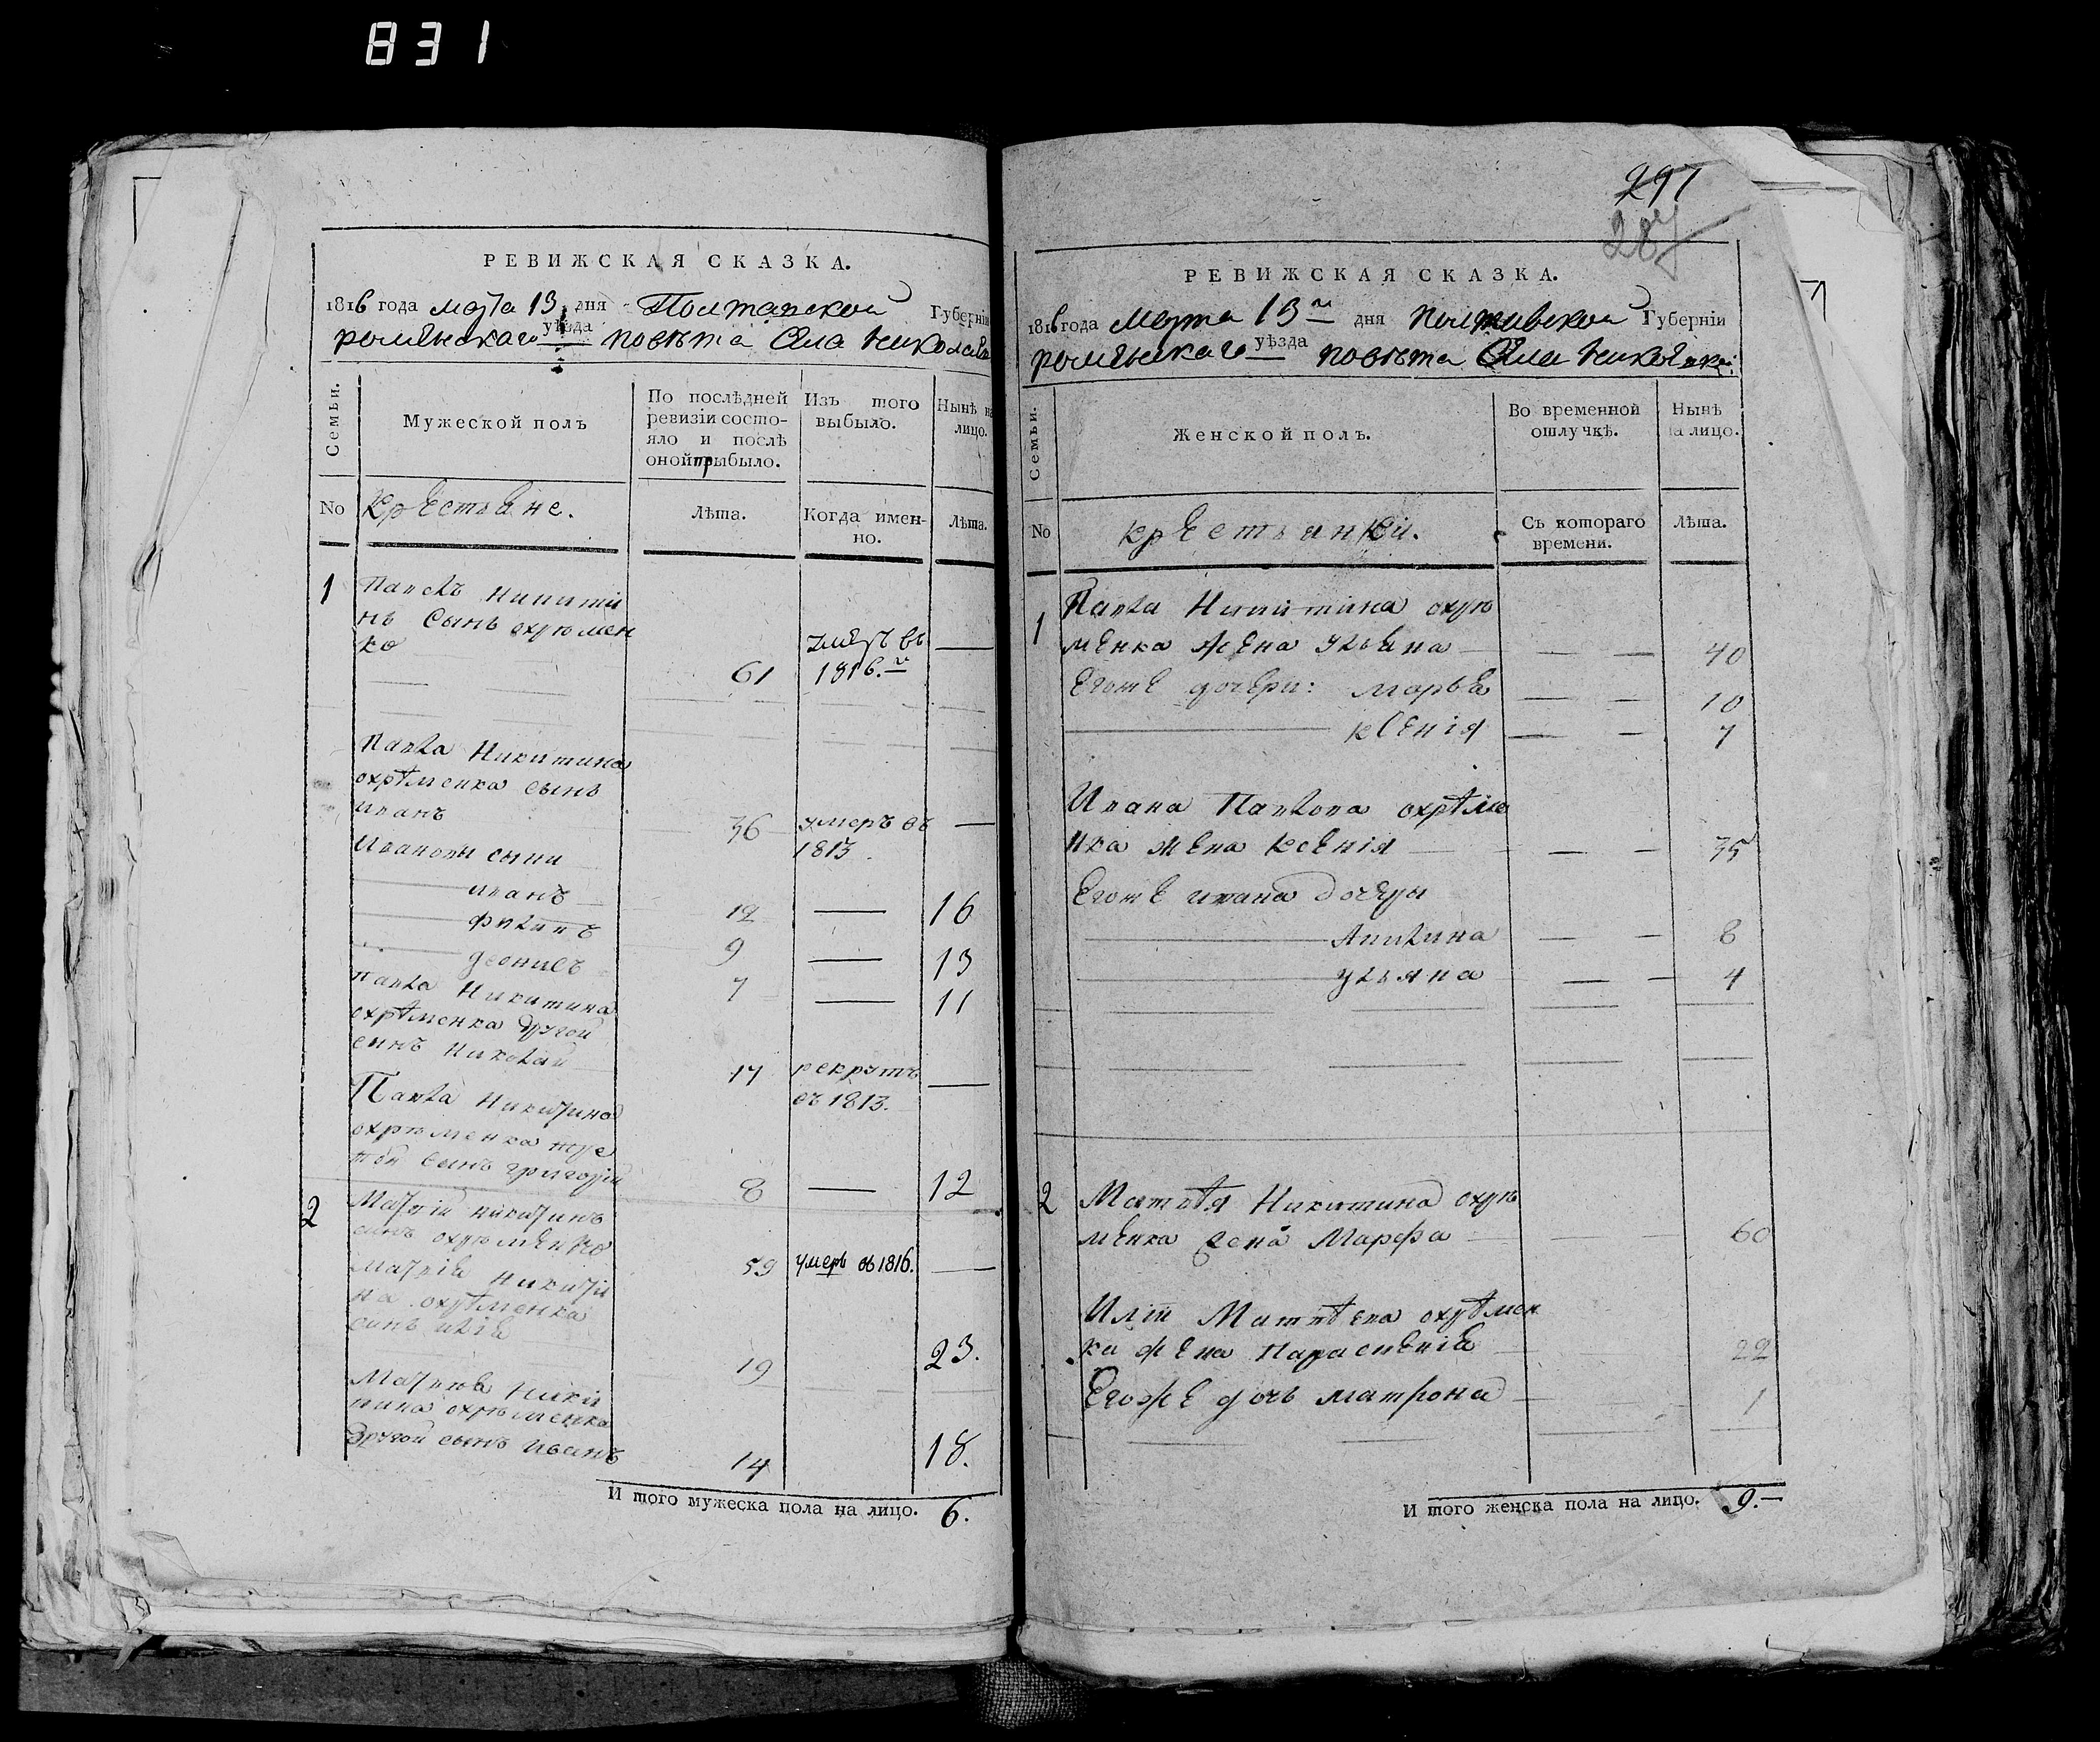 831
РЕВИЖСКАЯ СКАЗКА.
1816 года марта 13 дня Полтавской Губерніи
роменскаго уѣзда повѣта Села Николаев
Семьи.
Мужеской полъ
По послѣдней ревизіи состо-
яло и послѣ
оной прибыло.
Изъ того
выбыло.
Нынѣ на
лицо.
No
крестьяне.
Лѣта.
Когда имен-
но.
Лѣта.
1
Павелъ Никити
нъ Сынъ охрѣмен
ко
61
умеръ въ
1816.
Павла Никитина
охрѣменка сынъ
иванъ
36
умеръ въ
1813.
Ивановы сыни
иванъ
12
16
филипъ
9
13
денисъ
7
11
Павла Никитина
охрѣменка другой
синъ Николай
17
рекрутъ
въ 1813.
Павла Никитина
охрѣменка тре
той сынъ григорій
8
12
2
Матвій никитинъ
синъ охрѣменко
59
умеръ въ 1816.
Матвія Никити
на охрѣменка
синъ илія
19
23.
Матвѣя Ники
тина охрѣменка
другой сынъ иванъ
14
18.
И того мужеска пола на лицо. 6.
291
287
РЕВИЖСКАЯ СКАЗКА.
1816 года марта 13 дня полтавской Губерніи
роменскаго уѣзда повѣта Села
Семьи.
Женской полъ.
Во временной
отлучкѣ.
Нынѣ
на лицо.
No
крестьянки.
Съ котораго
времени.
Лѣта.
1
Павла Никитина охрѣ
менка жена ульяна
40
Егоже дочери: марья
10
ксенія
7
Ивана Павлова охрѣме
нка жена ксенія
35
Егоже ивана дочери
Акилина
8
ульяна
4
2
Матвѣя Никитина охрѣ
менка жена Марфа
60
Иліи Матвѣева охрѣмен
ка жена Параскевія
22
Егоже дочь матрона
1
И того женска пола на лицо. 9.